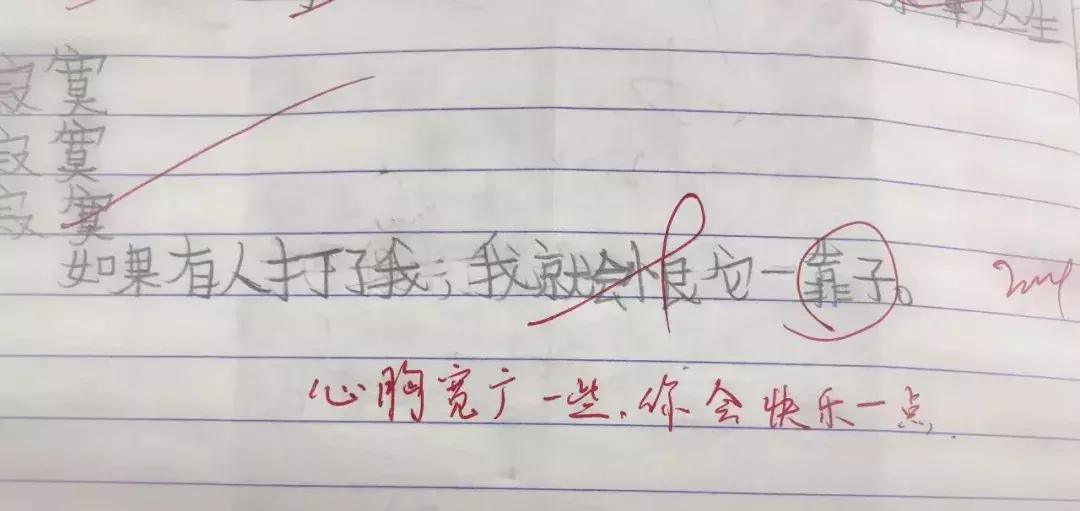 人生
寂寞
寂寞
寂寞
如果有人打了我，我就会恨它一靠子。
心胸宽广一些，你会快乐一点